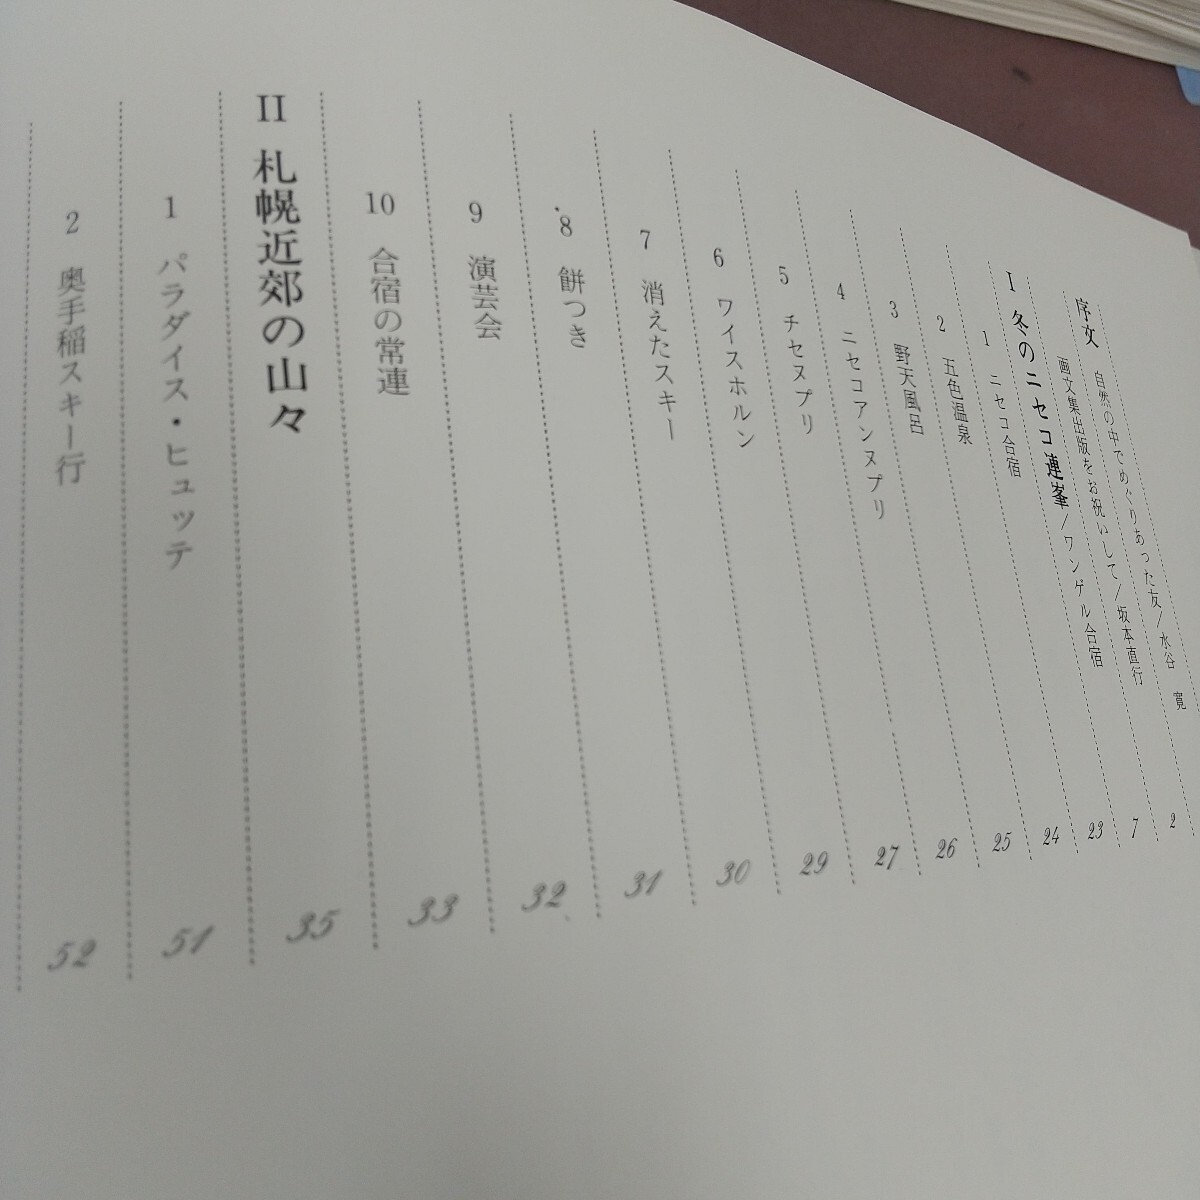 序文 自然の中でめぐりあった友/水谷 寛
画文集出版をお祝いして/坂本直行 2
I 冬のニセコ連峯/ワンゲル合宿 7
1 ニセコ合宿 23
2 五色温泉 24
3 野天風呂 25
4 ニセコアンヌプリ 26
5 チセヌプリ 27
6 ワイスホルン 29
7 消えたスキー 30
8 餅つき 31
9 演芸会 32
10 合宿の常連 33
II 札幌近郊の山々 35
1 パラダイス・ヒュッテ 51
2 奥手稲スキー行 52